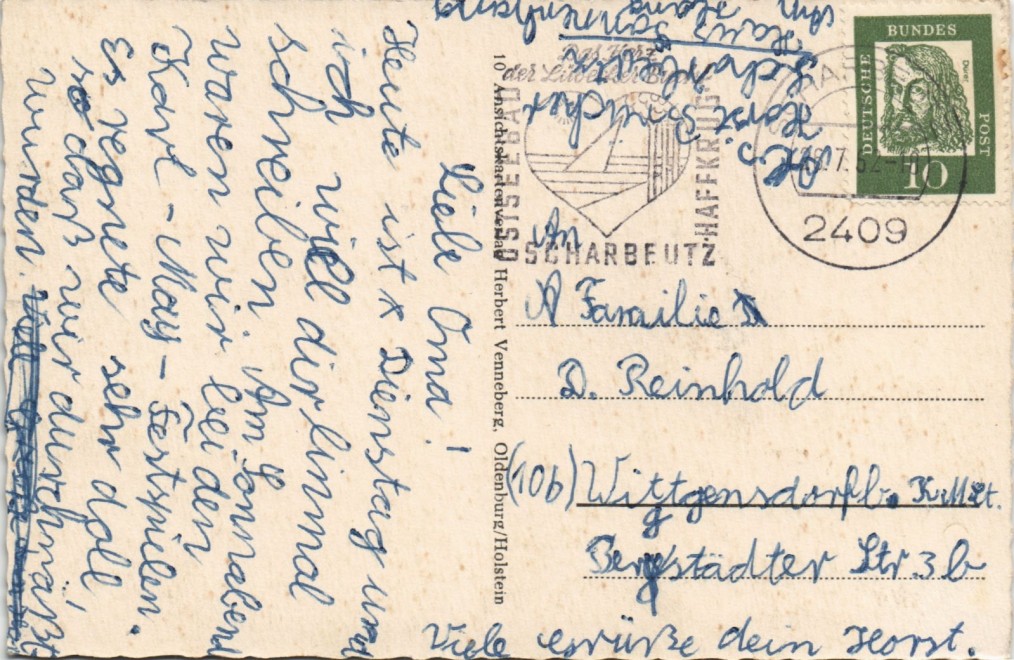 Liebe Oma!
Heute ist x Dienstag und
ich will dir einmal
schreiben. Am Sonnabend
waren wir bei den
Karl-May-Festspielen.
Es regnete sehr doll,
so daß wir durchnäßt
wurden.
Viele Grüße dein Horst.
Abs.
Horst
Scharbeutz
Haus Sonnenschein
10 Ansichtskartenverlag Herbert Venneberg, Oldenburg/Holstein
Das Herz
der Lübecker Bucht
OSTSEEBAD
SCHARBEUTZ
HAFFKRUG
2409
DEUTSCHE
BUNDES
POST
Dürer
10
An
Familie
D. Reinhold
(10b) Wittgensdorf b. K.-M.-St.
Bergstädter Str 3b